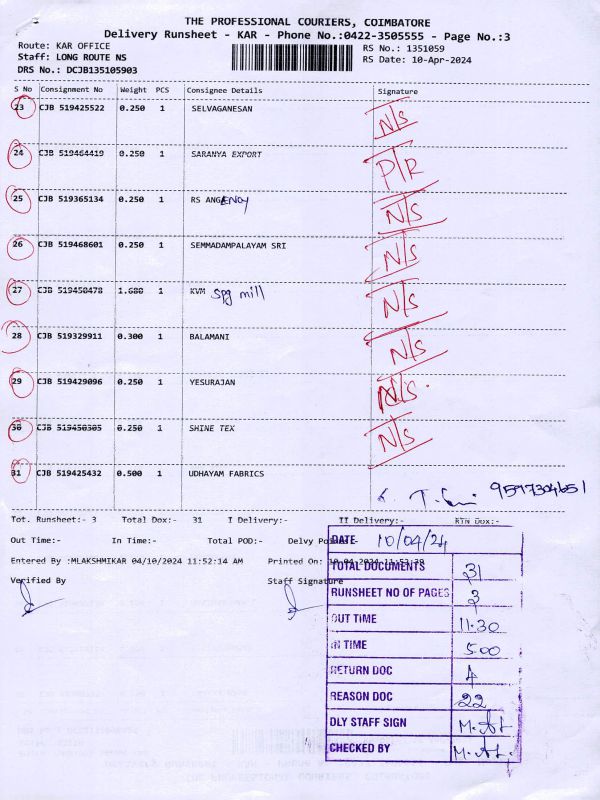 THE PROFESSIONAL COURIERS, COIMBATORE
Delivery Runsheet - KAR - Phone No.:0422-3505555 - Page No.:3
Route: KAR OFFICE RS No.: 1351059
Staff: LONG ROUTE NS RS Date: 10-Apr-2024
DRS No.: DCJCB135105903
S No Consignment No Weight PCS Consignee Details Signature
23 CJB 519425522 0.250 1 SELVAGANESAN N/S
24 CJB 519464419 0.250 1 SARANYA EXPORT P/R
25 CJB 519365134 0.250 1 RS ANGENCY N/S
26 CJB 519468601 0.250 1 SEMMADAMPALAYAM SRI N/S
27 CJB 519450478 1.680 1 KVM Spg mill N/S
28 CJB 519329911 0.300 1 BALAMANI N/S
29 CJB 519429096 0.250 1 YESURAJAN N/S
30 CJB 519450305 0.250 1 SHINE TEX N/S
31 CJB 519425432 0.500 1 UDHAYAM FABRICS
9597304651
Tot. Runsheet:- 3 Total Dox:- 31 I Delivery:- II Delivery:- RTN Dox:-
Out Time:- In Time:- Total POD:- Delvy
Entered By :MLAKSHMIKAR 04/10/2024 11:52:14 AM Printed On:
Verified By Staff Signature
DATE 10/04/24
TOTAL DOCUMENTS 31
RUNSHEET NO OF PAGES 3
OUT TIME 11.30
IN TIME 5.00
RETURN DOC 4
REASON DOC 22
DLY STAFF SIGN
CHECKED BY